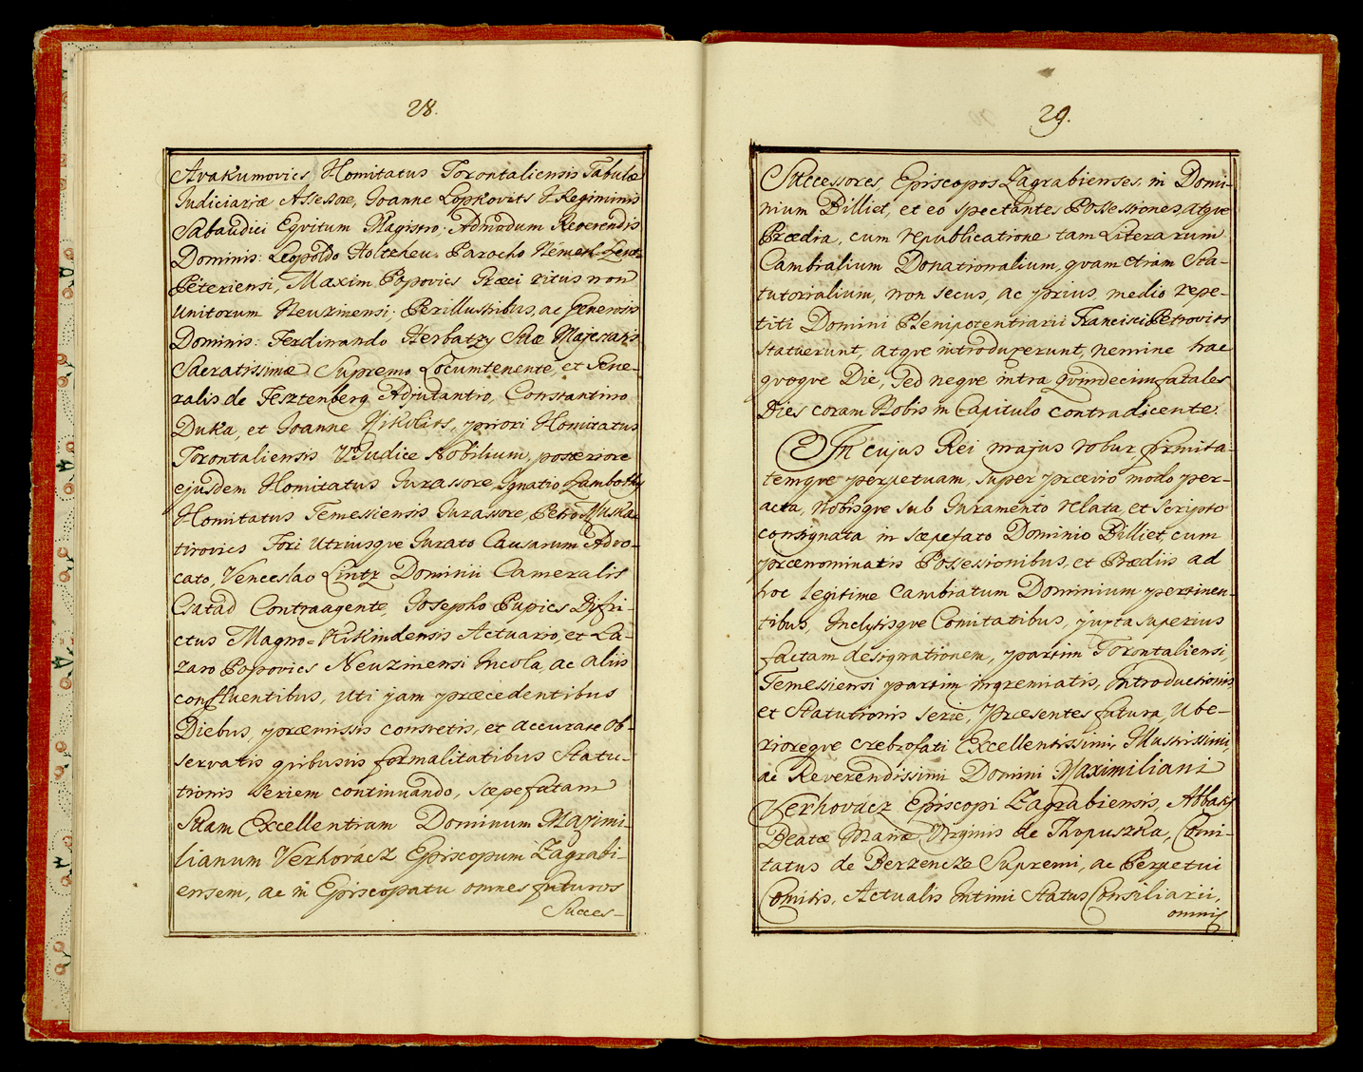 28.
Arakumovics Homitatus Torontaliensis Tabulæ
Judiciariæ Assessore, Joanne Lopkovits Regiminis
Sabaudici Equitum Magistro; Admodum Reverendis
Dominis: Leopoldo Holtcheu Parocho Nemeth Sent
Péteriensi, Maxim. Popovics Græci ritus non
Unitorum Neuzinensi; Perillustribus, ac Generosis
Dominis: Ferdinando Herbatzy Suæ Majestatis
Sacratissimæ Supremo Locumtenente, et Gene-
ralis de Fesztenberg Adjutantio, Constantino
Duka, et Joanne Nikolits, priori Homitatus
Torontaliensis V Judice Nobilium, posteriore
ejusdem Homitatus Jurassore, Ignatio Lambothy
Homitatus Temessiensis Jurassore, Petro Muska-
tirovics Fori Utriusqve Jurato Causarum Advo-
cato, Venceslao Lintz Dominii Cameralis
Csatad Contraagente, Josepho Pupics Distri-
ctus Magno-Kikindensis Actuario, et La-
zaro Popovics Neuzinensi Incola, ac aliis
confluentibus, uti jam præcedentibus
Diebus, præmissis consvetis, et accurate Ob-
servatis qvibusvis formalitatibus Statu-
tionis Seriem continuando, sæpefatam
Suam Excellentiam Dominum Maximi-
lianum Verhovacz Episcopum Zagrabi-
ensem, ac in Episcopatu omnes futuros
Succes-
29.
Successores, Episcopos Zagrabienses, in Domi-
nium Billiet, et eo spectantes Possessiones, atqve
Prædia, cum republicatione tam Literarum
Cambialium Donationalium, qvam Etiam Sta-
tutorialium, non secus, ac prius, medio repe-
titi Domini Plenipotentiarii Francisci Petrovits
statuerunt, atqve introduxerunt, nemine hac
qvoqve Die, sed neqve intra qvindecim fatales
Dies coram Nobis in Capitulo contradicente.
In cujus Rei majus robur firmita-
temqve perpetuam, super prævio modo per-
acta, nobisqve sub Juramento relata, et Scripto
consignata in sæpefato Dominio Billiet cum
prænominatis Possessionibus, et Prædiis ad
hoc legitime Cambiatum Dominium pertinen-
tibus, Inclytisqve Comitatibus, juxta superius
factam designationem, partim Torontaliensi,
Temessiensi partim ingremiatis, Introductionis,
et Statutionis serie, Præsentes futura, Ube-
rioreqve crebrofati Excellentissimi, Illustrissimi,
ac Reverendissimi Domini Maximiliani
Verhovacz Episcopi Zagrabiensis, Abbatis
Beatæ Mariæ Virginis de Thopuszka, Comi-
tatus de Berzencze Supremi, ac Perpetui
Comitis, Actualis Intimi Status Consiliarii,
omnis